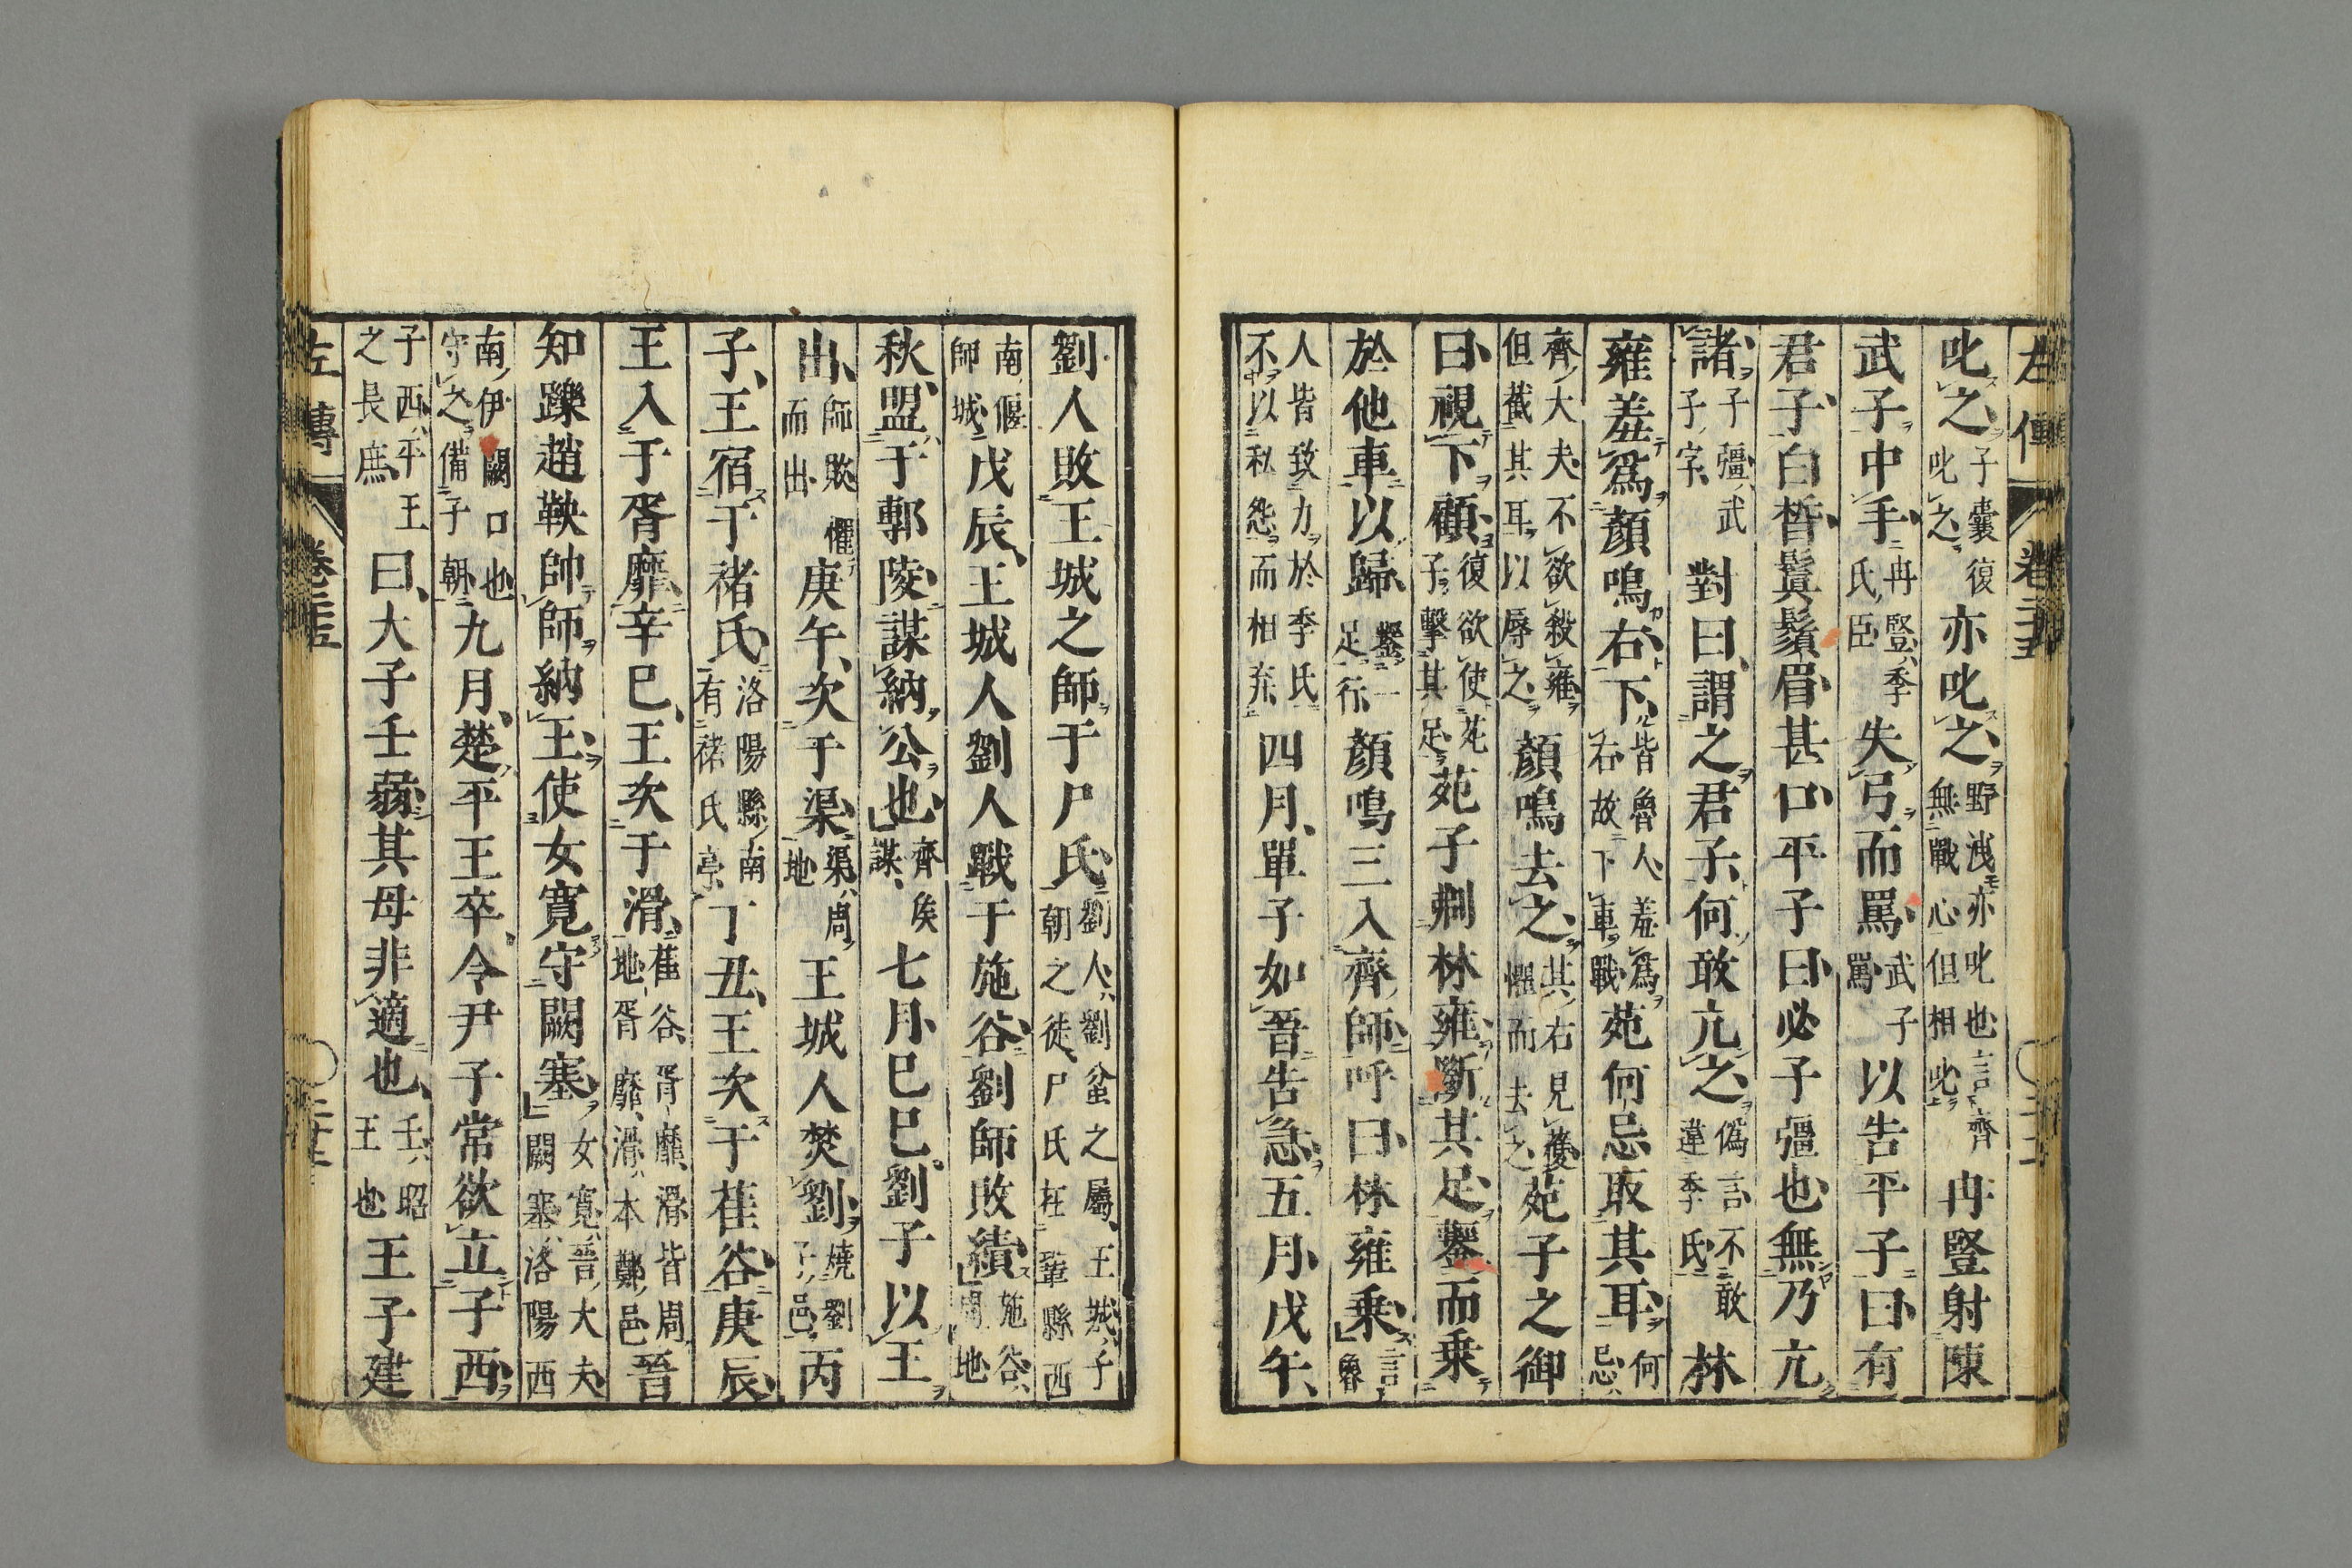 左傳 卷二十五
叱之子囊復叱之亦叱之野洩亦叱也言齊無戰心但相叱冉豎射陳
武子中手冉豎季氏臣失弓而罵武子罵以告平子曰有
君子白晳鬒鬚眉甚口平子曰必子彊也無乃亢
諸子彊武子字對曰謂之君子何敢亢之偽言不敢違季氏林
雍羞爲顏鳴右下皆魯人羞爲右故下車戰苑何忌取其耳何忌
齊大夫不欲殺雍但截其耳以辱之顏鳴去之其右見獲懼而去之苑子之御
曰視下顧復欲使苑子擊其足苑子刜林雍斷其足鑋而乗
於他車以歸鑋一足行顏鳴三入齊師呼曰林雍乗言魯
人皆致力於季氏不以私怨而相弃四月單子如晉告急五月戊午
劉人敗王城之師于尸氏劉人劉蚠之屬王城子朝之徒尸氏在鞏縣西
南偃師城戊辰王城人劉人戰于施谷劉師敗績施谷周地
秋盟于鄟陵謀納公也齊矦謀七月己巳劉子以王
出師敗懼而出庚午次于渠渠周地王城人焚劉燒劉子邑丙
子王宿于褚氏洛陽縣南有褚氏亭丁丑王次于萑谷庚辰
王入于胥靡辛巳王次于滑萑谷胥靡滑皆周地胥靡滑本鄭邑晉
知躒趙鞅帥師納王使女寛守闕塞女寛晉大夫闕塞洛陽西
南伊闕口也守之備子朝九月楚平王卒令尹子常欲立子西
子西平王之長庶曰大子壬弱其母非適也壬昭王也王子建
左傳 卷二十五